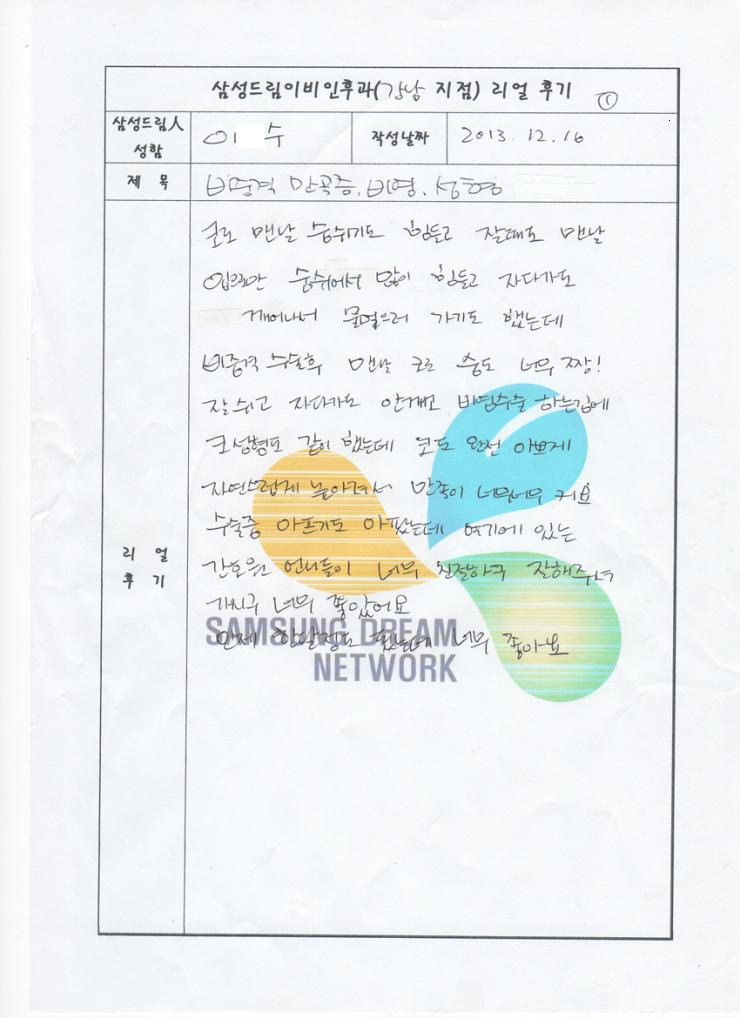 삼성드림이비인후과(강남 지점) 리얼 후기 ①
삼성드림人 성함
이 수
작성날짜
2013. 12. 16
제 목
비중격 만곡증. 비염. 성형
리 얼 후 기
코로 맨날 숨쉬기도 힘들고 잘때도 맨날
입으로만 숨쉬어서 많이 힘들고 자다가도
깨어나서 물먹으러 가기도 했는데
비중격 수술후 맨날 코로 숨도 너무 짱!
잘 쉬고 자다가도 안깨고 비염수술 하는김에
코성형도 같이 했는데 코도 완전 이쁘게
자연스럽게 높아져서 만족이 너무너무 커요
수술중 아프기도 아팠는데 여기에 있는
간호원 언니들이 너무 친절하구 잘해주셔
가지구 너무 좋았어요
한달정도 됐는데 너무 좋아요
SAMSUNG DREAM
NETWORK